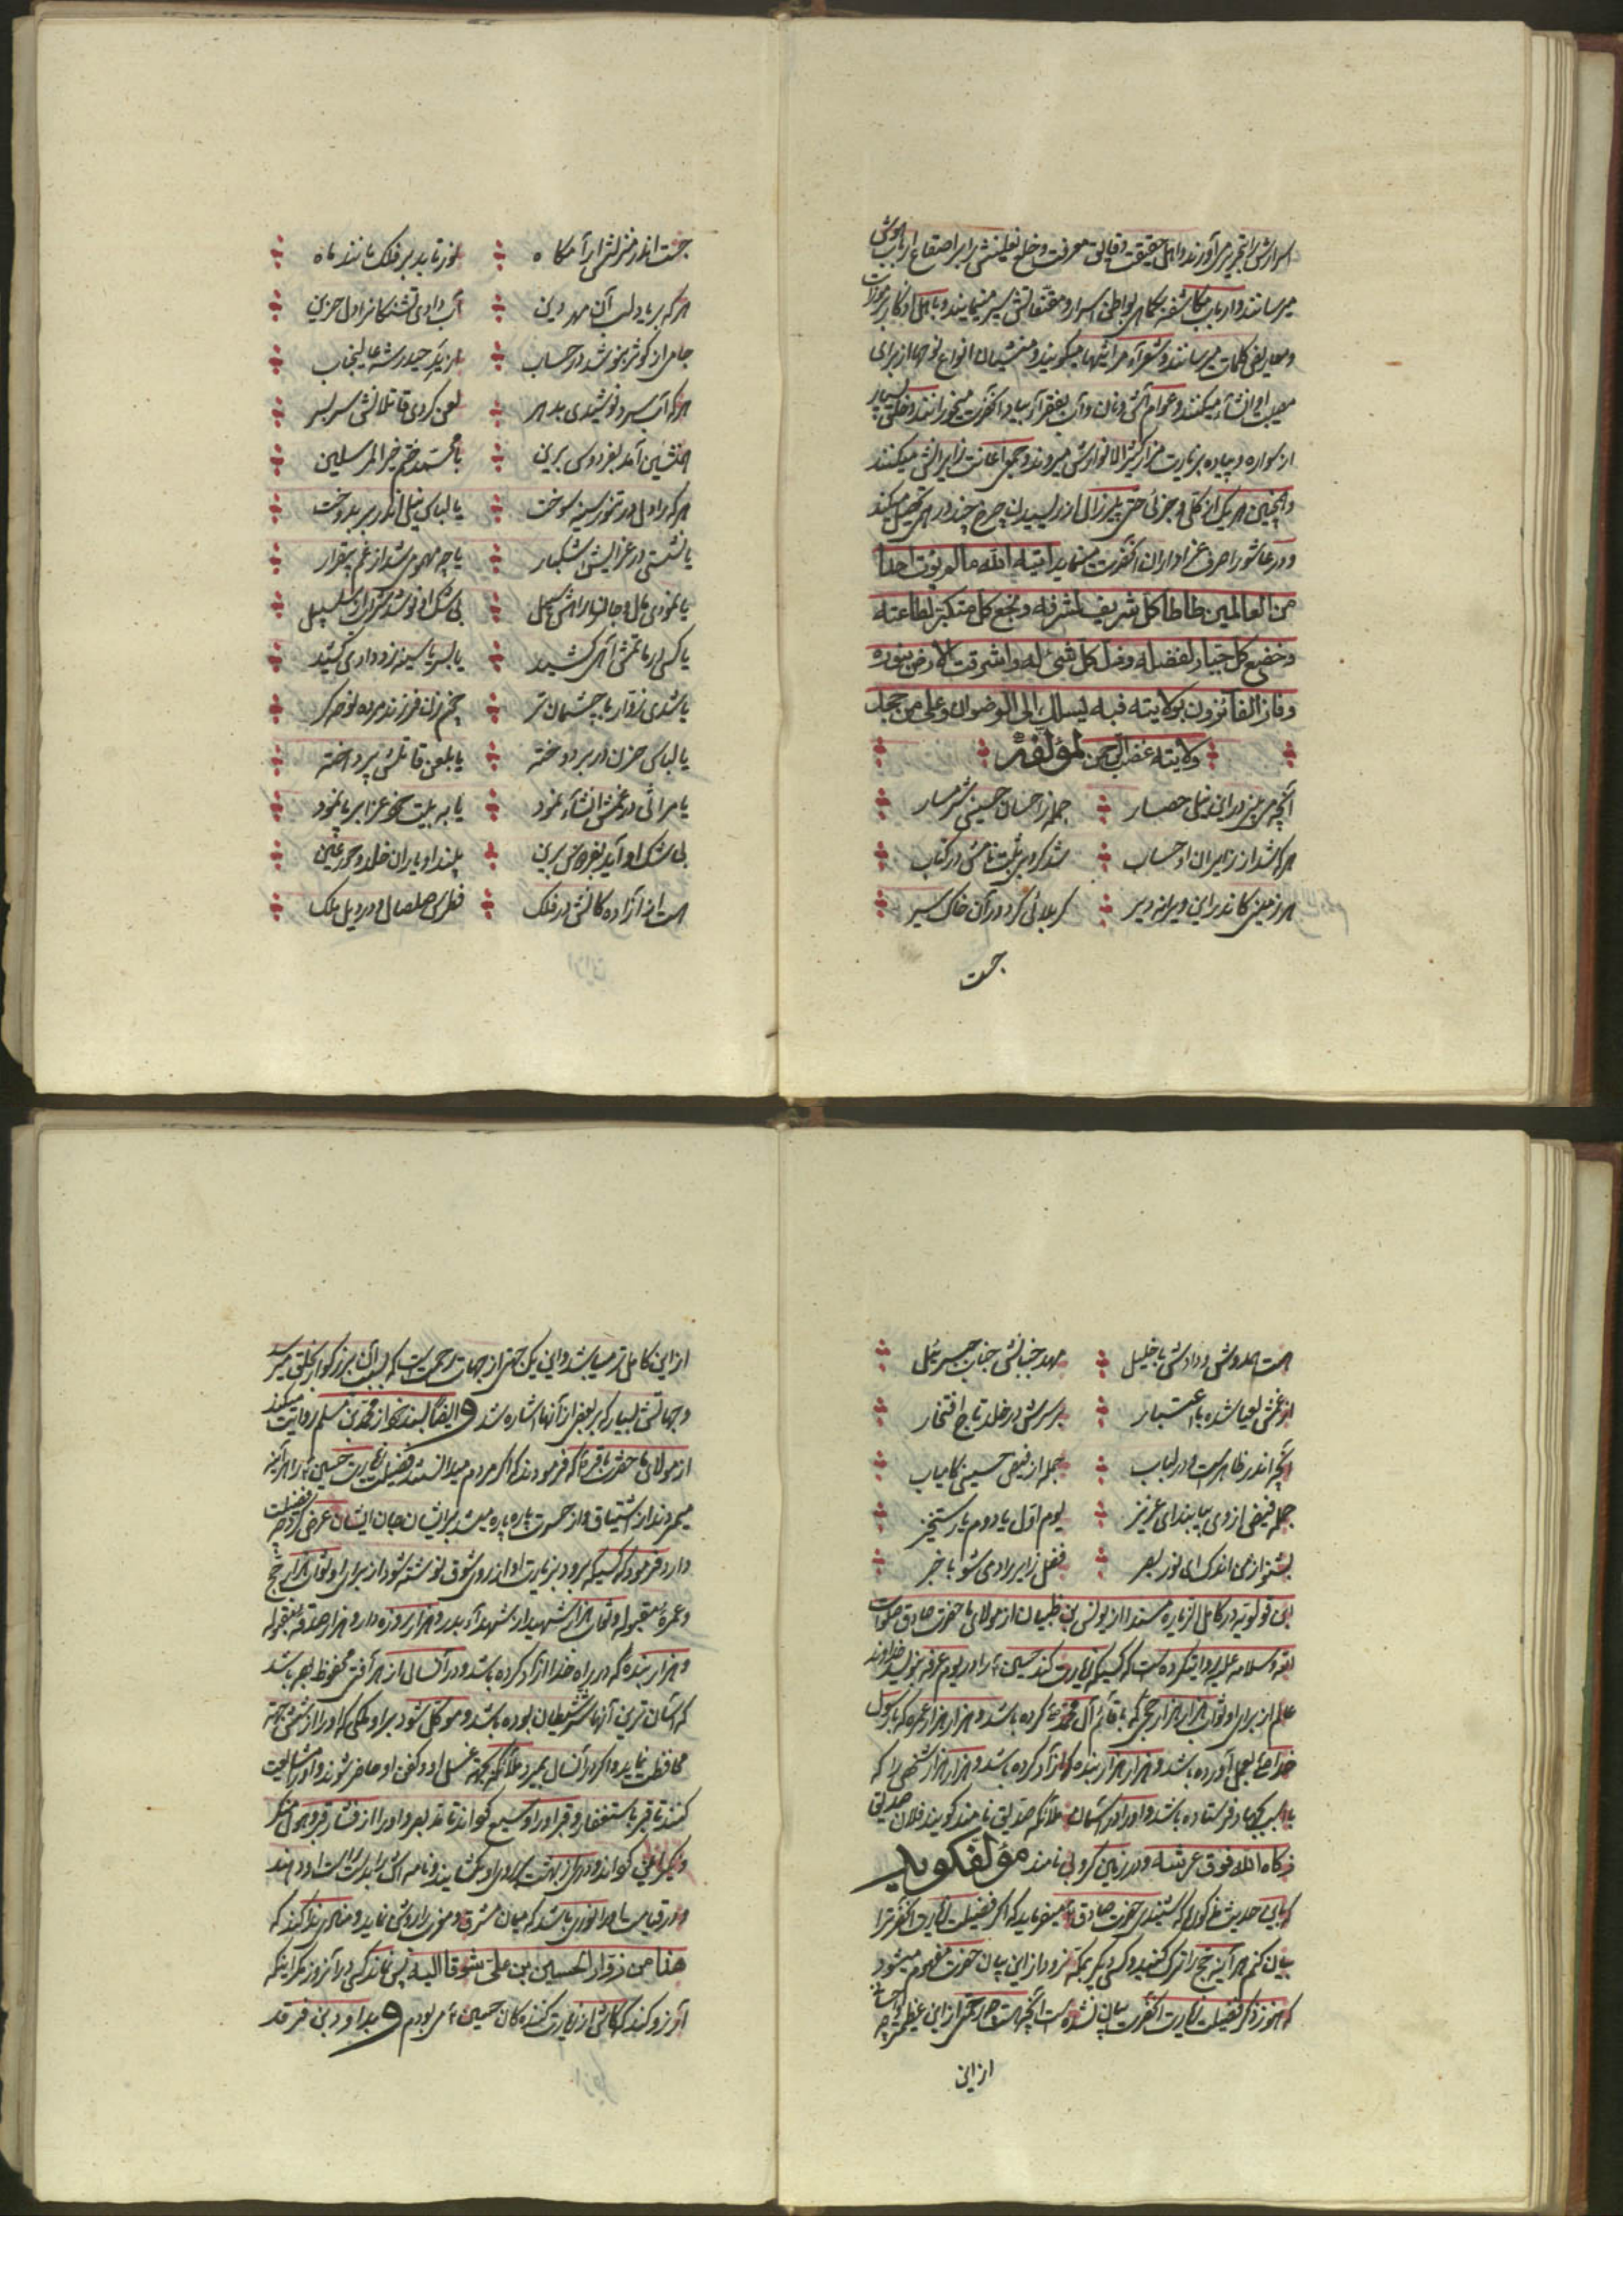 اسرارش را تحریر می‌آورند و اهل حقیقت و قیالت معرفت و خلع نعلینش را بر اصقاع ارباب هوش
میرسانند و ارباب مکاشفه بکماهی بواطن اسرار و سیر مینمایند و باهل اذکار
و معاریض کلمات میرسانند و شعرآء مراثیها میگویند و منشیان انواع نوحها از برای
مصیبت او انشآء میکنند و عوام آش و نان و آب بفقرآء بیاد آنحضرت میخورانند و خلق بسیار
از سواره و پیاده بزیارت مزار کثیر الانوارش میروند و جمعی اعانت زایرانش میکنند
و همچنین هر یک از کلی و جزئی حتی پیرزال از ریسیدن چرخ چند درهم تحصیل میکند
و در عاشورا صرف عزاداران آنحضرت مینماید آتیه الله ما لم یؤت احدا
من العالمین طاطا کل شریف لشرفه و نجع کل متکبر لطاعته
و خضع کل جبار لفضله و ذل کل شئ له و اشرقت الارض بنوره
و فاز الفآئزون بولایته فبه یسلک الی الرضوان و علی من جحد
ولایته غضب الرحمن لمؤلفه
آنچه می بینی در این نیلی حصار جمله ز احسان حسینی شرمسار
هر که شد از زایران او حساب شد کروبی ثبت نامش در کتاب
هر زمینی کاندر این ویرانه دیر کربلائی گردد در آن خاک سیر
جست
جست اندر منزلش آرامگاه نور تابد بر فلک مانند ماه
هر که بر یاد لب آن مهر دین آب دادی تشنگانرا دل حزین
جامی از کوثر بنوشد در حساب از ید حیدر شه عالیجناب
هر که آب سرد نوشیدی بدهر لعن کردی قاتلانش سر بسر
همنشین آمد بفردوس برین با محمد ختم خیر المرسلین
هر که را دل در تنور سینه سوخت یا لباس نیلی اندر بر بدوخت
یا نشستی در عزایش اشکبار یا چه مهموم شد از غم بیقرار
یا نمودی مال و جان را بهرش سبیل بی شک او نوشد ز سلسبیل
یا کسی در ماتمش آهی کشید یا بسر یا سینه زد دادی کشید
یا شدی زوار با چشمان تر همچو زن فرزند مرده نوحه گر
یا لباس حزن در بر دوخته یا بلعن قاتلش پرداخته
یا مراثی در غمش انشآء نمود یا به بیت خود عزا بر پا نمود
بی شک او آید بفردوس برین بیند او یاران خلد و حور عین
هست از آزاده گانش در فلک فطرس و صلصال و دردیل ملک
هست همدوش و دادش با خلیل مهد جنبانش جناب جبرئیل
از غمش یحیا شده با اعتبار بر سرش در خلد تاج افتخار
آنچه اندر ظاهر است و در لباب جمله از فیض حسینی کامیاب
جمله فیض از وی بیابند ای عزیز یوم اول یا دوم یا رستخیز
بشنو از من اندک ای نور بصر فضل زایر را دمی شو با خبر
ابن قولویه در کامل الزیاره مسندا از یونس بن ظبیان از مولای ما حضرت صادق صلوات
الله و سلامه علیه روایتکرده است که کسیکه زیارت کند حسین ع را در یوم عرفه بنویسد خداوند
عالم از برای او ثواب هزار هزار حج که با قائم آل محمد ع کرده باشد و هزار هزار عمره که با رسول
خدا ص بعمل آورده باشد و هزار هزار بنده که آزاد کرده باشد و هزار هزار شخصی را که
با اسب بجهاد فرستاده باشد و او را در آسمان ملائکه صدیق نامند گویند فلان صدیق
زکاه الله فوق عرشه و در زمین کروبی نامند مؤلف گوید
که باین حدیث مذکور که شنیدی حضرت صادق ع میفرماید که اگر فضیلت زیارت آنحضرت را
بیان کنم هر آینه حج را ترک کنید و کسی دیگر بمکه نرود از این بیان حضرت مفهوم میشود
که هنوز ذکر فضیلت زیارت آنحضرت بیان نشده است آنچه هست از این عظیمتر چه
از این
از این کاملتر میباشد و این یک جهتی از جهات رحمت است که بسبب آن بزرگوار بخلق میرسد
و جهاتش بسیار که ببعضی از آنها اشاره شد و ایضا بسند خود از محمد بن مسلم روایت میکند
از مولای ما حضرت باقر ع که فرمودند که اگر مردم میدانستند فضیلت زیارت حسین ع را هر آینه
میمردند از اشتیاق و از حسرت پاره پاره میشد برایشان جان ایشان عرض کرد چه فضیلت
دارد فرمود که کسیکه برود بزیارت او از روی شوق نوشته شود از برای او ثواب هزار حج
و عمره مقبوله و ثواب هزار شهید از شهدآء بدر و هزار روزه دار و هزار صدقه مقبوله
و هزار بنده که در راه خدا آزاد کرده باشد و در آنسال از هر آفتی محفوظ بوده باشد
که آسان ترین آنها شر شیطان بوده باشد و موکل شود بر او ملکی که او را از شش جهة
محافظت نماید و اگر در آنسال بمیرد ملائکه بجهة غسل او و کفن او حاضر شوند و او را مشایعت
کنند تا قبر باستغفار و قبر او را وسیع گردانند تا مد بصر و او را از فشار قبر و هول منکر
و نکیر ایمن گردانند و دری از بهشت بروی او بگشایند و نامه اش را بدست راست او دهند
و در قیامت او را نوری باشد که میان مشرق و مغرب را روشن نماید و منادی ندا کند که
هذا من زوار الحسین بن علی شوقا الیه پس نماند کسی در آنروز مگر اینکه
آرزو کند که کاش از زیارت کننده گان حسین ع می بودم و بداود بن فرقد